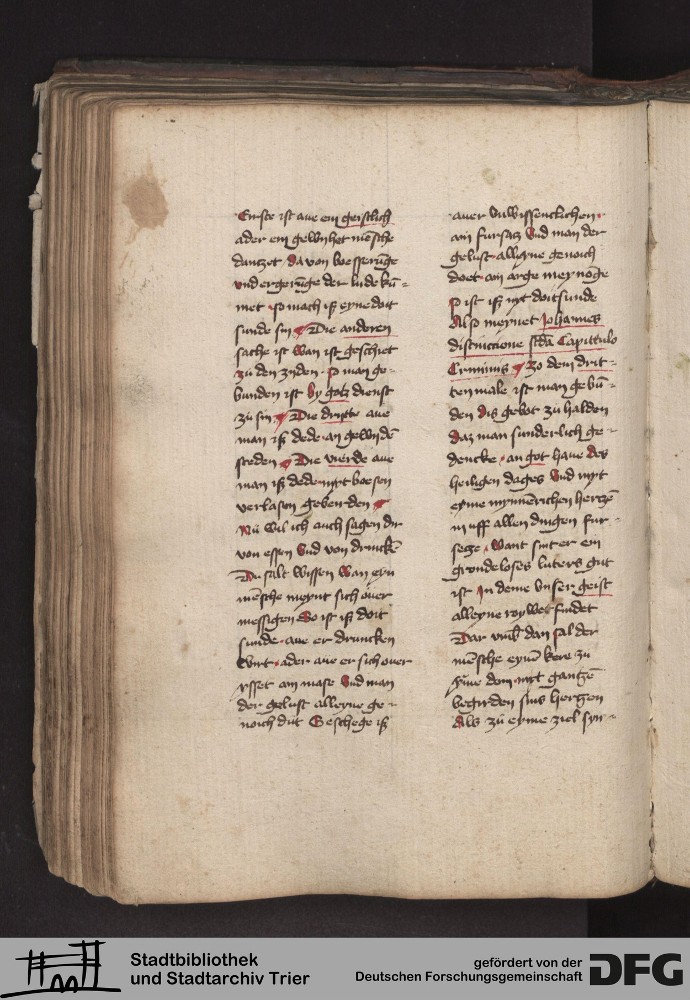 Erste ist aue ein geistlich
ader ein gewyhet mēsche
dantzet · da von boesserūge
vnd ergerūge der lude kū-
met · so mach iß eyne doit
sunde sin Die anderen
sache ist wan ist geschiet
zu den zyden · so man ge-
bunden ist by gotz dienst
zu sin Die drytte aue
man iß dede an gewyden
steden Die vierde aue
man iß dede myt boesen
verlason geberden
Nu wil ich auch sagen dir
von essen vnd von drincken
Du salt wissen wan eyn
mēsche meynt sich ouer
messigen So ist iß doit
sunde · aue er druncken
wirt · ader aue er sich ouer
ysset ain mase vnd man
der gelust alleyne ge-
noich dut Geschege iß
auer vnwissenclichen
ain fursatz vnd man der
gelust alleyne genoich
doet ain arge meynoge
so ist iß nyt doitsunde
Also meynet Johannes
distinccione scda Capittulo
Criminis Zo dem drit-
ten male ist man gebū-
den dis gebot zu halden
daz man sunderlich ge-
dencke · an got haue des
heiligen dages vnd nyt
eyme mynnērichen hertzē
in uff allen dingen fur-
setze · want sint er ein
grondeloses luters gut
ist In deme vnser geist
alleyne roywe findet
Dar vmb dan sal der
mēsche eynē kere zu
yme don myt gantzē
begirden sins hertzen
Als zu eyme ziel syn-
Stadtbibliothek
und Stadtarchiv Trier
gefördert von der
Deutschen Forschungsgemeinschaft
DFG